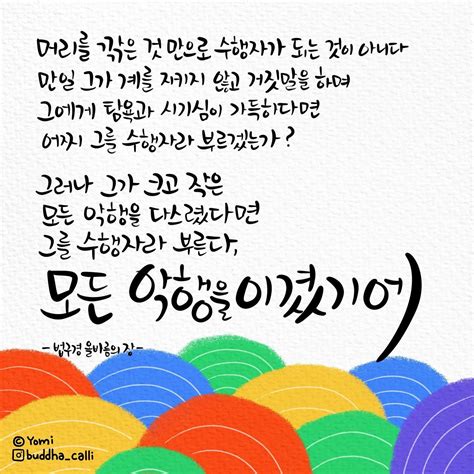 머리를 깎은 것 만으로 수행자가 되는 것이 아니다
만일 그가 계를 지키지 않고 거짓말을 하며
그에게 탐욕과 시기심이 가득하다면
어찌 그를 수행자라 부르겠는가?
그러나 그가 크고 작은
모든 악행을 다스렸다면
그를 수행자라 부른다,
모든 악행을 이겼기에
- 법구경 올바름의 장 -
© Yomi
buddha_calli